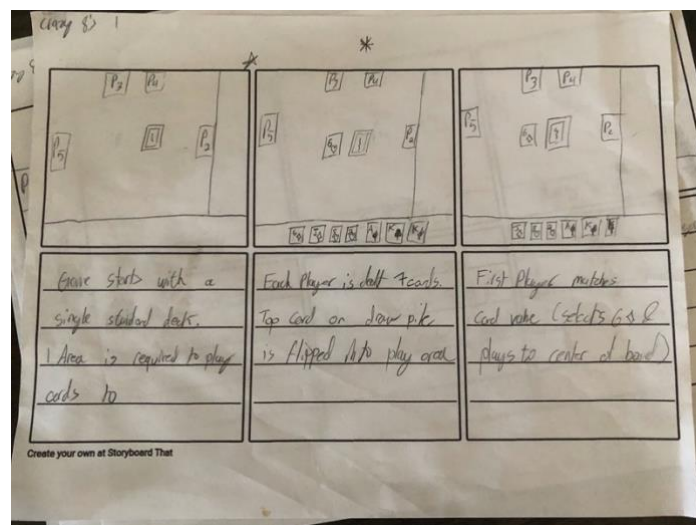 Crazy 8s 1
P3 P4
P5 P2
P3 P4
P5 P2
P3 P4
P5 P2
Game starts with a
single standard deck.
1 Area is required to play
cards to
Each Player is dealt 7 cards.
Top card on draw pile
is flipped into play area
First Player matches
card value (selects 6♢ &
plays to center of board)
Create your own at Storyboard That